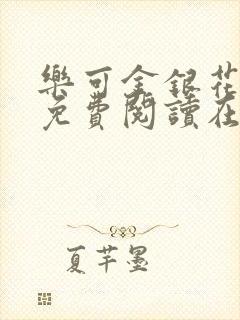 樂可金銀花
免費閱讀在
夏芊墨